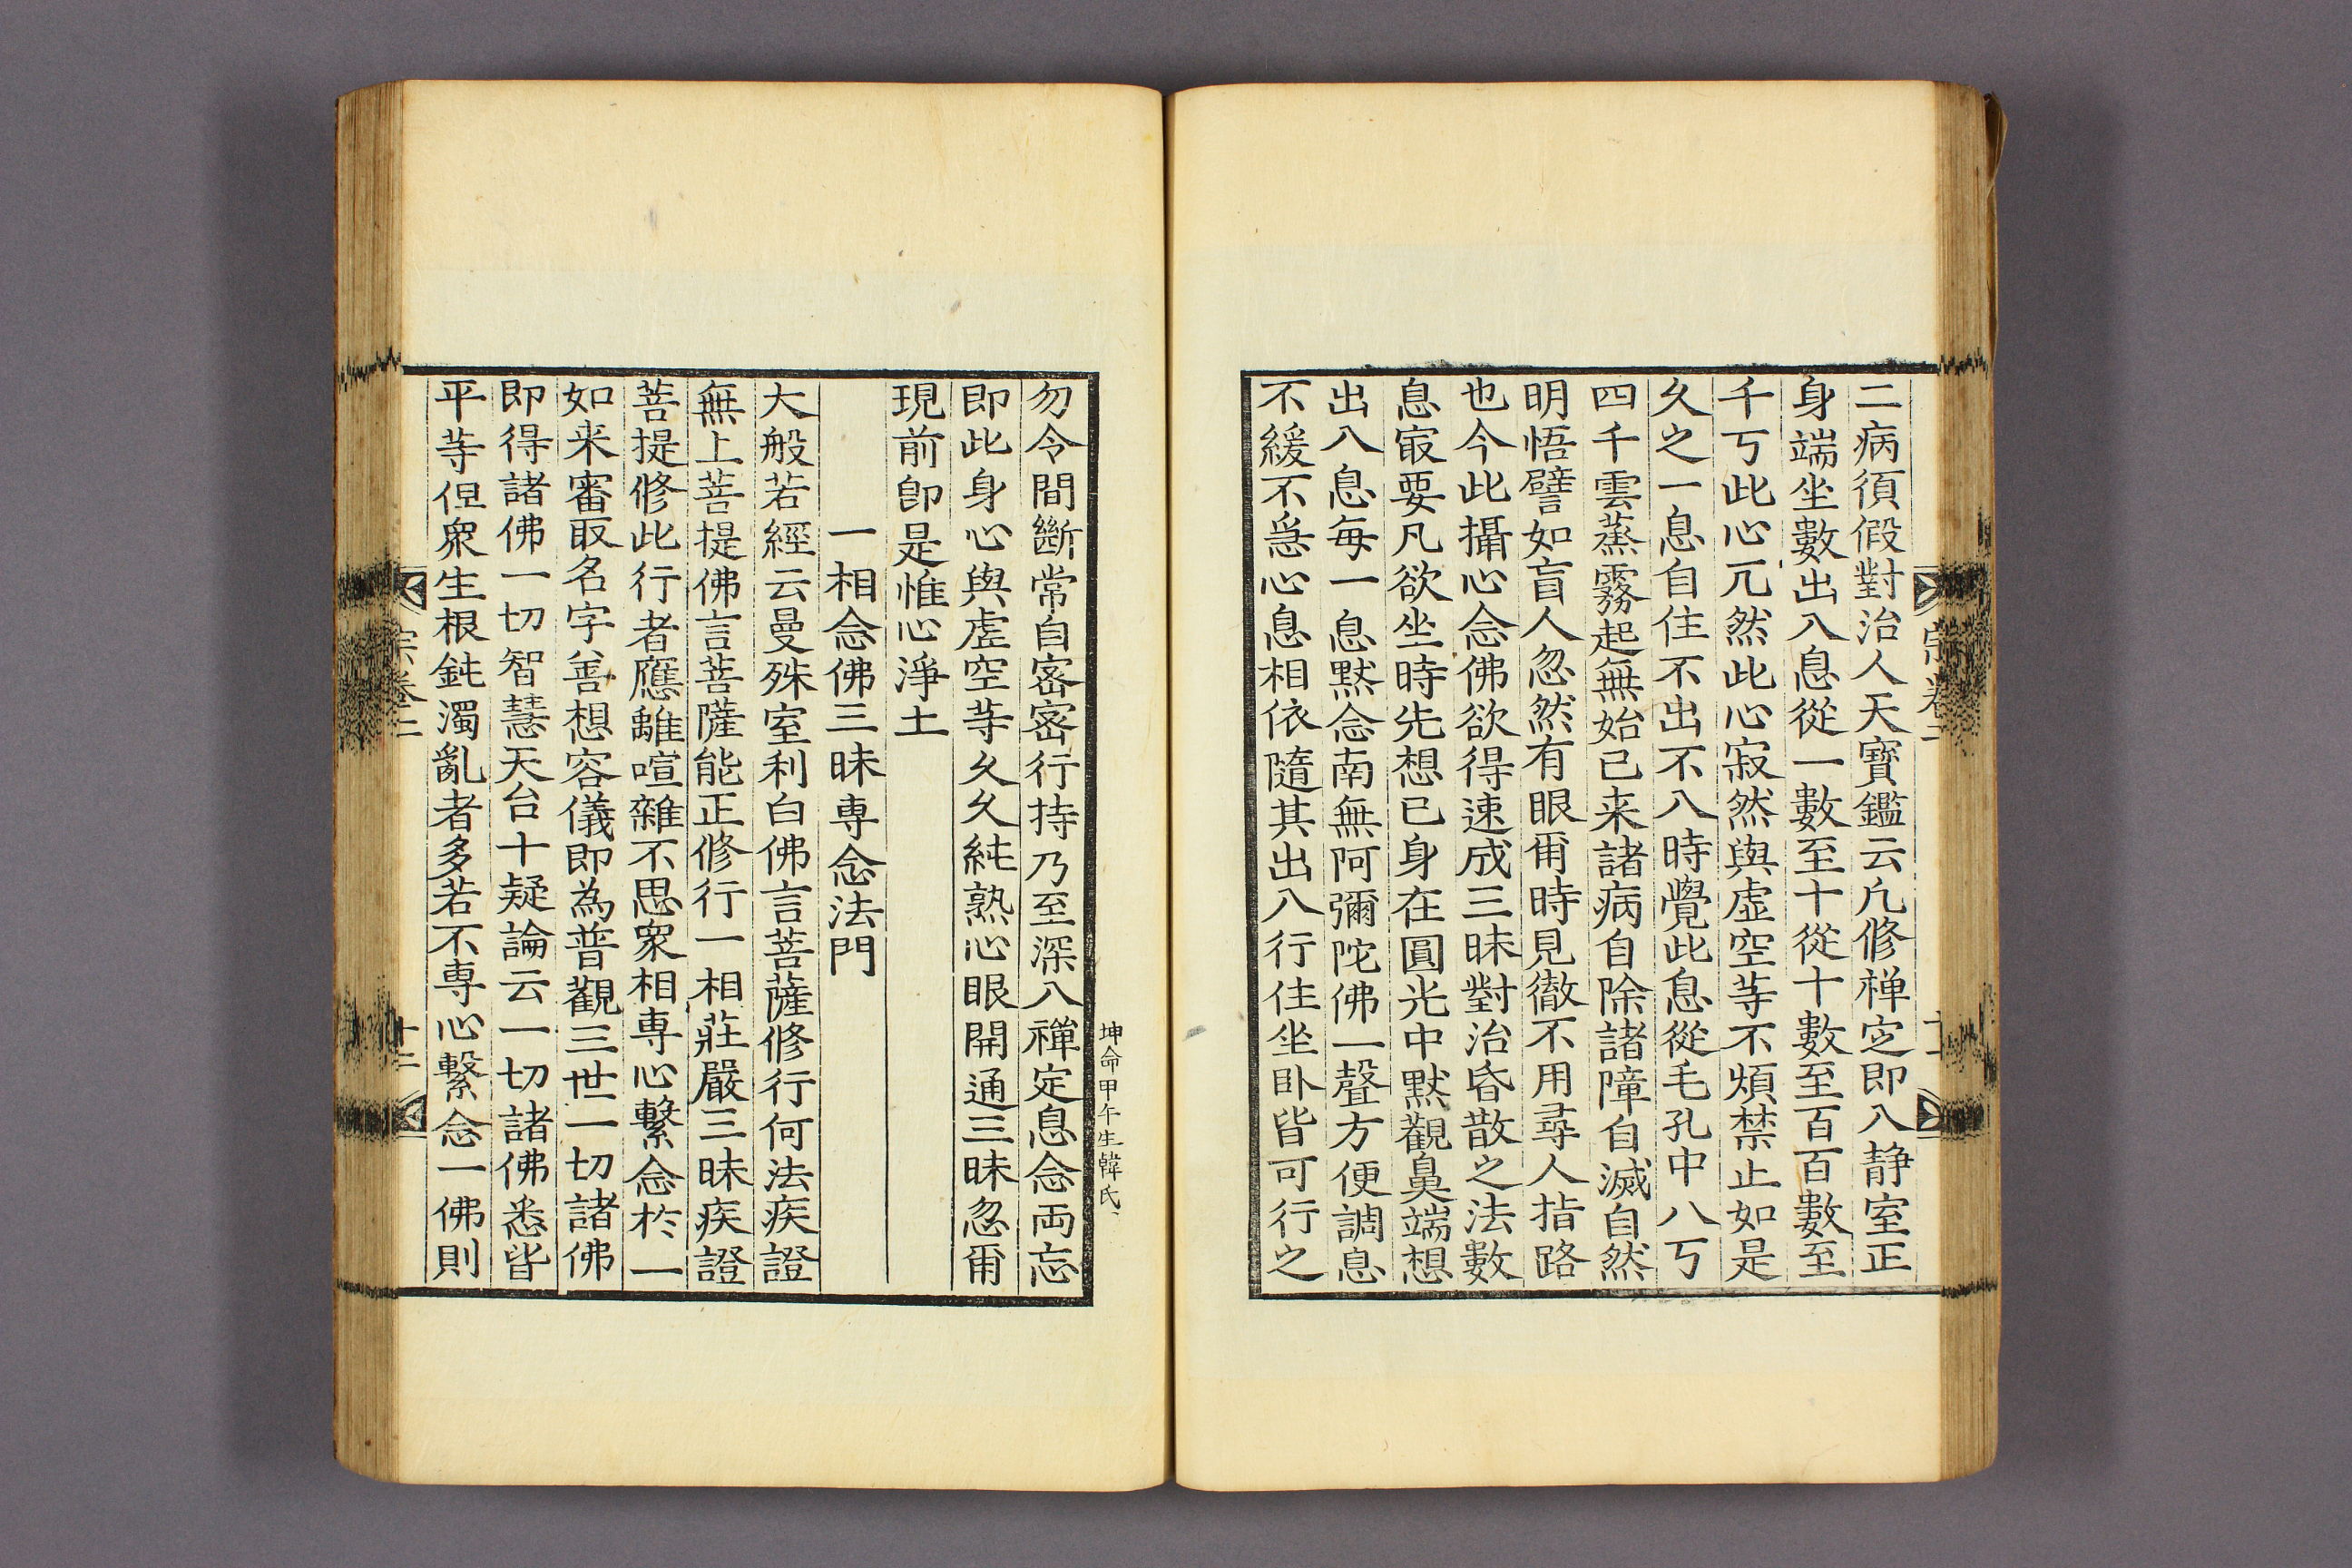 二病須假對治人天寶鑑云凢修禅㝎即入静室正
身端坐數出入息從一數至十從十數至百百數至
千丂此心兀然此心寂然與虛空䓁不煩禁止如是
久之一息自住不出不入時覺此息從毛孔中八丂
四千雲蒸霧起無始已来諸病自除諸障自滅自然
明悟譬如盲人忽然有眼爾時見徹不用尋人指路
也今此攝心念佛欲得速成三昧對治昏散之法數
息㝡要凡欲坐時先想已身在圓光中默觀鼻端想
出入息每一息默念南無阿彌陀佛一聲方便調息
不緩不急心息相依隨其出入行住坐卧皆可行之
宗卷二
十一
坤命甲午生韓氏
勿令間斷常自密密行持乃至深入禪定息念両忘
即此身心與虛空䓁久久純熟心眼開通三昧忽爾
現前卽是惟心淨土
一相念佛三昧專念法門
大般若經云曼殊室利白佛言菩薩修行何法疾證
無上菩提佛言菩薩能正修行一相莊嚴三昧疾證
菩提修此行者應離喧雜不思衆相專心繫念於一
如来審取名字善想容儀即為普觀三世一切諸佛
即得諸佛一切智慧天台十疑論云一切諸佛悉皆
平䓁但衆生根鈍濁亂者多若不專心繫念一佛則
宗卷二
十二